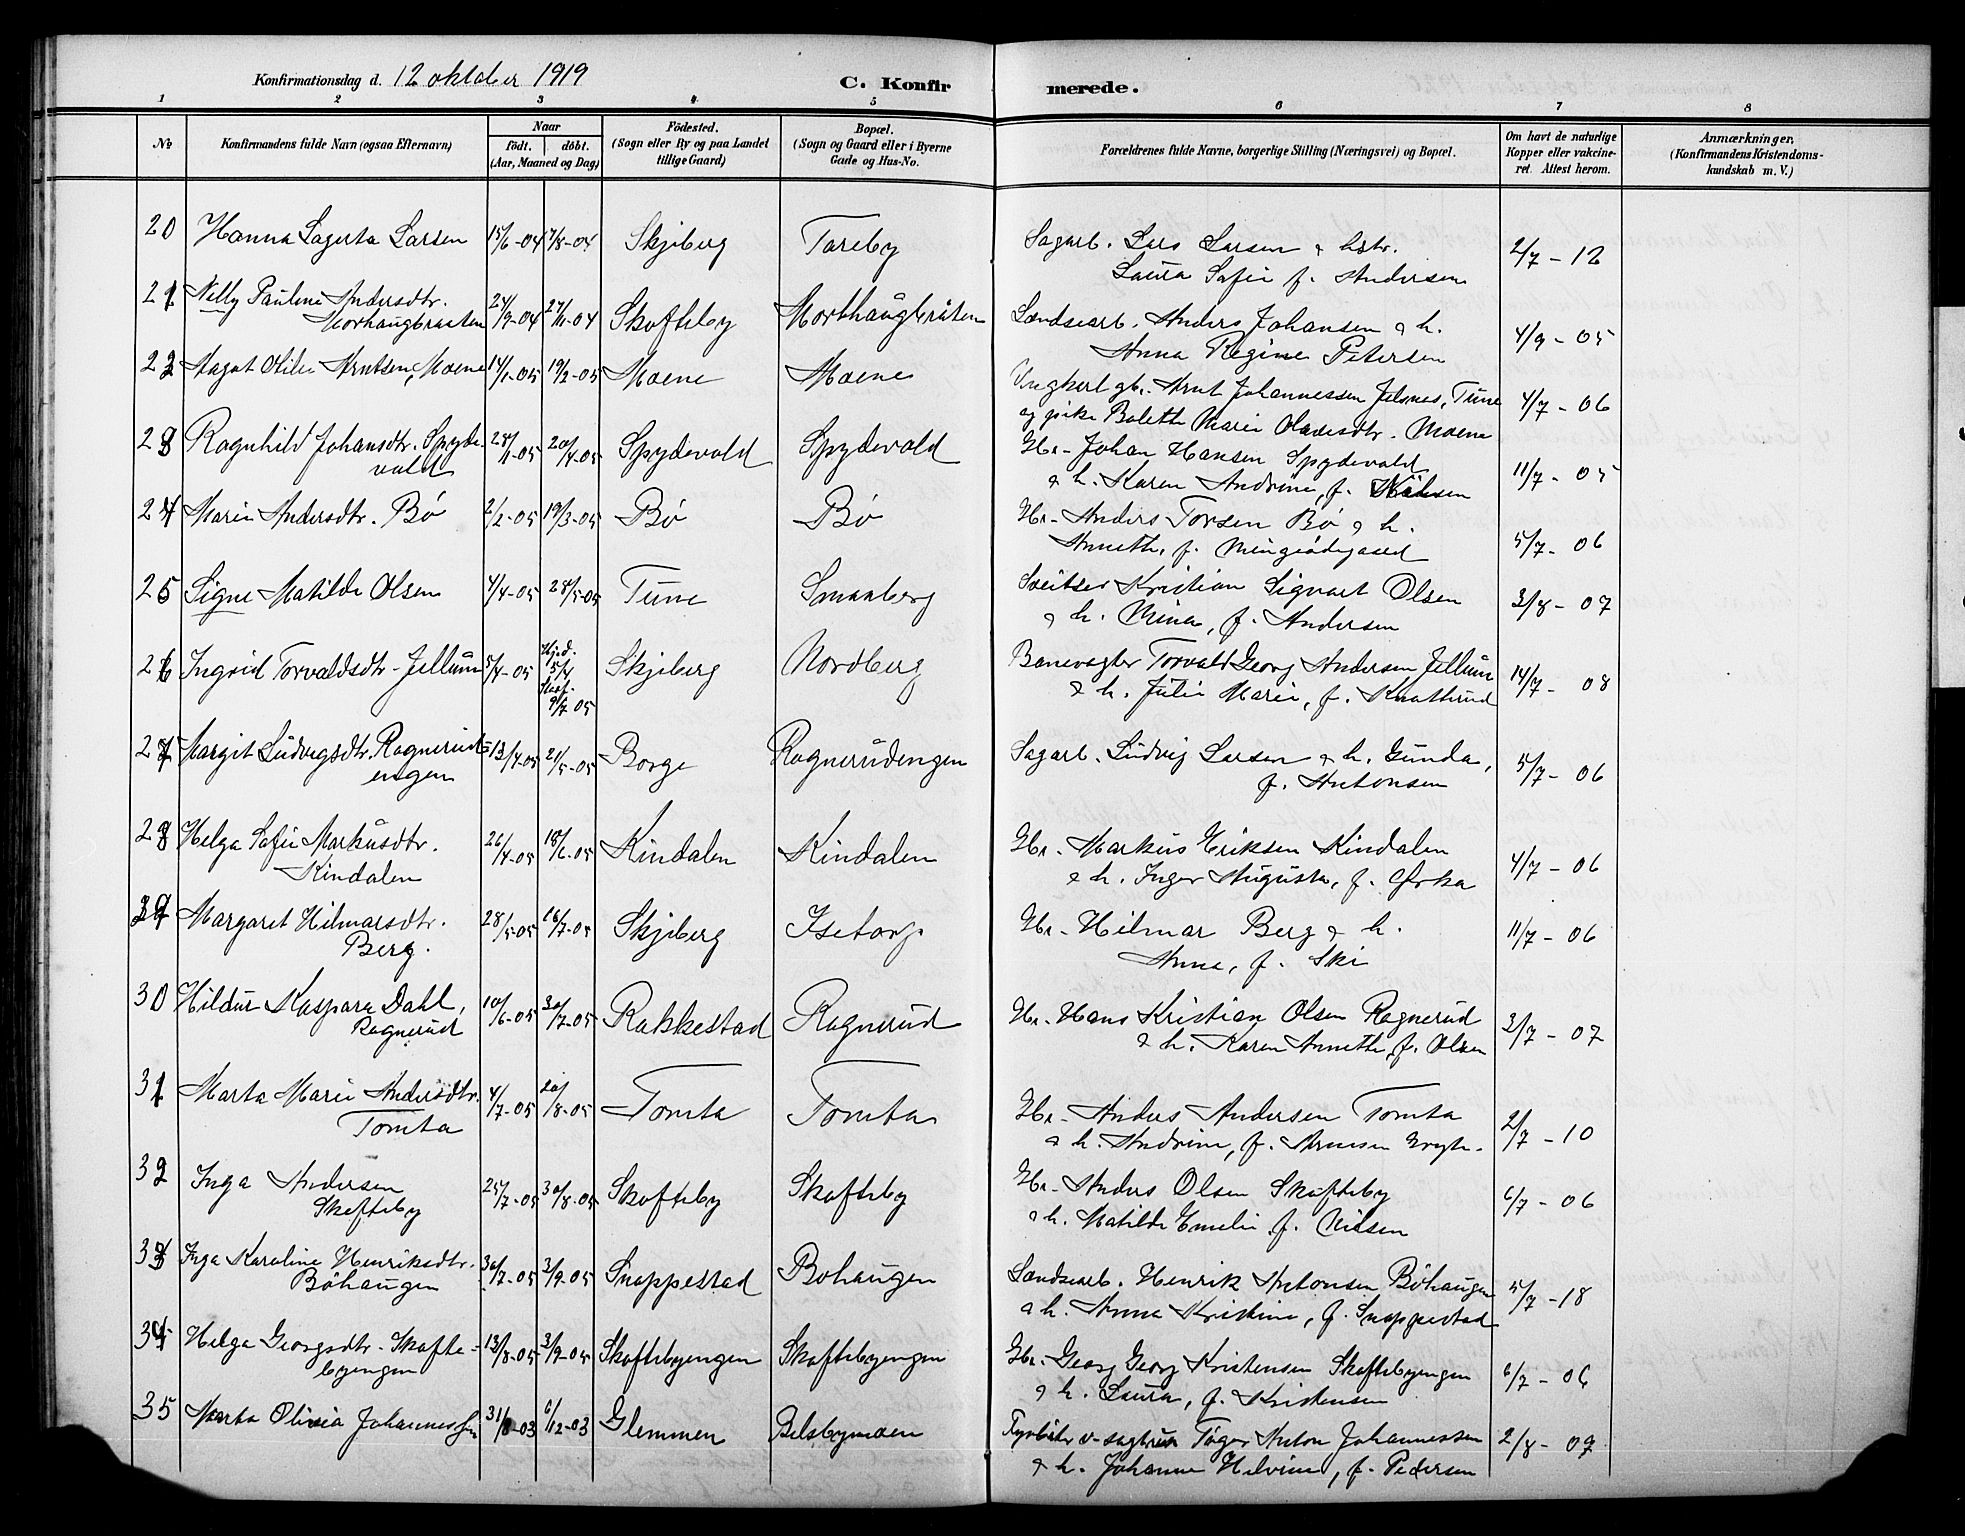 Konfirmationsdag d. 12 oktober 1919
C. Konfir merede.
1 2 3 4 5 6 7 8
No
Konfirmandens fulde Navn (ogsaa Efternavn)
Naar
födt. döbt.
(Aar, Maaned og Dag)
Födested.
(Sogn eller By og paa Landet
tillige Gaard)
Bopæl.
(Sogn og Gaard eller i Byerne
Gade og Hus-No.
Forældrenes fulde Navne, borgerlige Stilling (Næringsvei) og Bopæl.
Om havt de naturlige
Kopper eller vakcine-
ret. Attest herom.
Anmærkninger,
(Konfirmandens Kristendoms-
kundskab m. V.)
20 Hanna Lagerta Larsen 15/6-04 7/8-04 Skjeberg Tareby Sagarb. Lars Larsen & hstr. 2/7 - 12
Laura Sofie f. Andersen
21 Nelly Pauline Andersdtr. 24/9-04 27/11-04 Skofteby Morthaugbråten Landsearb. Anders Johansen & h. 4/9 - 05
Morhaugbraaten
Anna Regine Petersen
22 Aagot Otilie Arntsen, Moene 14/1-05 19/2-05 Moene Moene Ungkarl gbr. Arnt Johannessen Jelsnes, Tune 4/7 - 06
og pike Bolette Marie Olavesdtr. Moene
23 Ragnhild Johansdtr. Spyde- 28/1-05 20/4-05 Spydevold Spydevold Gbr. Johan Hansen Spydevold 11/7 - 05
vold
& h. Karen Andrine, f.
24 Marie Andersdtr. Bö 2/2-05 19/3-05 Bö Bö Gbr. Anders Torsen Bö & h. 5/7 - 06
Annette, f. Mingeödegaard
25 Signe Matilde Olsen 4/4-05 28/5-05 Tune Smaaberg Sveitser Kristian Sigvart Olsen 3/8 - 07
& h. Mina, f. Andersen
26 Ingrid Torvaldsdtr. Jellum 5/4-05 Hjd. 5/4 Stadf. 9/7 05 Skjeberg Nordberg Banevogter Torvald Georg Andersen Jellum 14/7 - 08
& h. Julie Marie, f. Knatterud
27 Margit Ludvigsdtr. Ragneruds- 13/4-05 21/5-05 Borge Ragnerudengen Sagarb. Ludvig Larsen & h. Gunda, 5/7 - 06
engen
f. Antonsen
28 Helga Sofie Markusdtr. 26/4-05 18/6-05 Kindalen Kindalen Gbr. Markus Eriksen Kindalen 4/7 - 06
Kindalen
& h. Inger Augusta, f. Ørka
29 Margaret Hilmarsdtr. 28/5-05 16/7-05 Skjeberg Isetorp Gbr. Hilmar Berg & h. 11/7 - 06
Berg.
Anna, f. Ski
30 Hildur Kaspara Dahl, 10/6-05 30/7-05 Rakkestad Ragnerud Gbr. Hans Kristian Olsen Ragnerud 3/7 - 07
Ragnerud
& h. Karen Annette, f. Olsen
31 Marta Marie Andersdtr. 4/7-05 20/8-05 Tomta Tomta Gbr. Anders Andersen Tomta 2/7 - 10
Tomta
& h. Andrine, f. Arnesen
32 Inga Andersen 25/7-05 30/8-05 Skofteby Skofteby Gbr. Anders Olsen Skofteby 6/7 - 06
Skofteby
& h. Matilde Emelie f. Nilsen
33 Inga Karoline Henriksdtr. 30/7-05 3/9-05 Snoppestad Bohaugen Landsearb. Henrik Antonsen Böhaugen 5/7 - 18
Böhaugen
& h. Anna Kristine, f. Snoppestad
34 Helga Georgsdtr. Skofte- 13/8-05 3/9-05 Skoftebyengen Skoftebyengen Gbr. Georg Georg Kristensen Skoftebyengen 6/7 - 06
byengen
& h. Laura, f. Kristensen
35 Marta Olivia Johannessen 31/8-03 6/12-03 Glemmen Belsbymoen Fyrböter v. sagbruk Töger Anton Johannessen 2/8 - 07
& h. Johanne Helvine, f. Pedersen